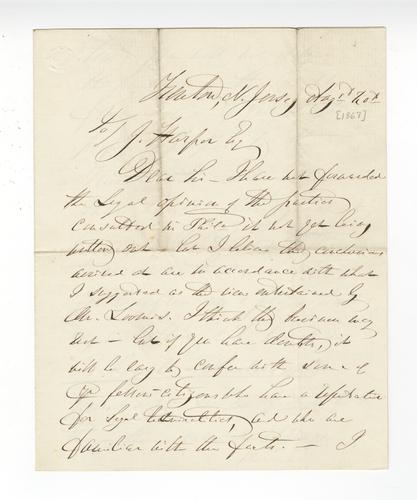 Trenton, N. Jersey Aug
[1867]
To J. Harper Esq
Dear Sir – I have not forwarded
the Legal opinion of the parties
consulted in Phila it not yet being
written out – but I believe the conclusions
arrived at are in accordance with what
I suggested as the views entertained by
Mr. Loomis. I think the business may
rest – but if you have doubts, it
will be easy to confer with some of
yr fellow citizens who have a reputation
for legal, and who are
familiar with the facts. – I